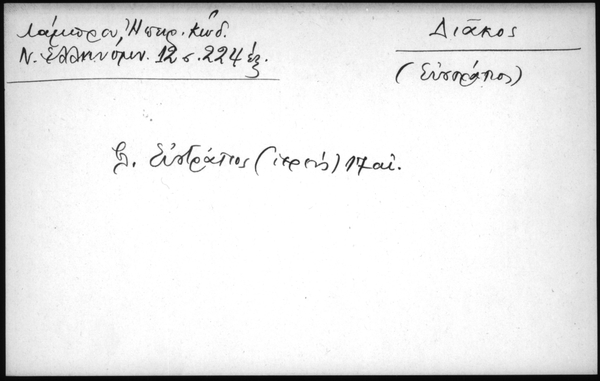 Λάμπρου, Ἠπειρ. Κώδ.
Ν. Ἑλληνομν. 12 σ. 224 ἑξ.
Διᾶκος
(Εὐστράτιος)
βλ. Εὐστράτιος (ἱερεύς) 17 αἰ.